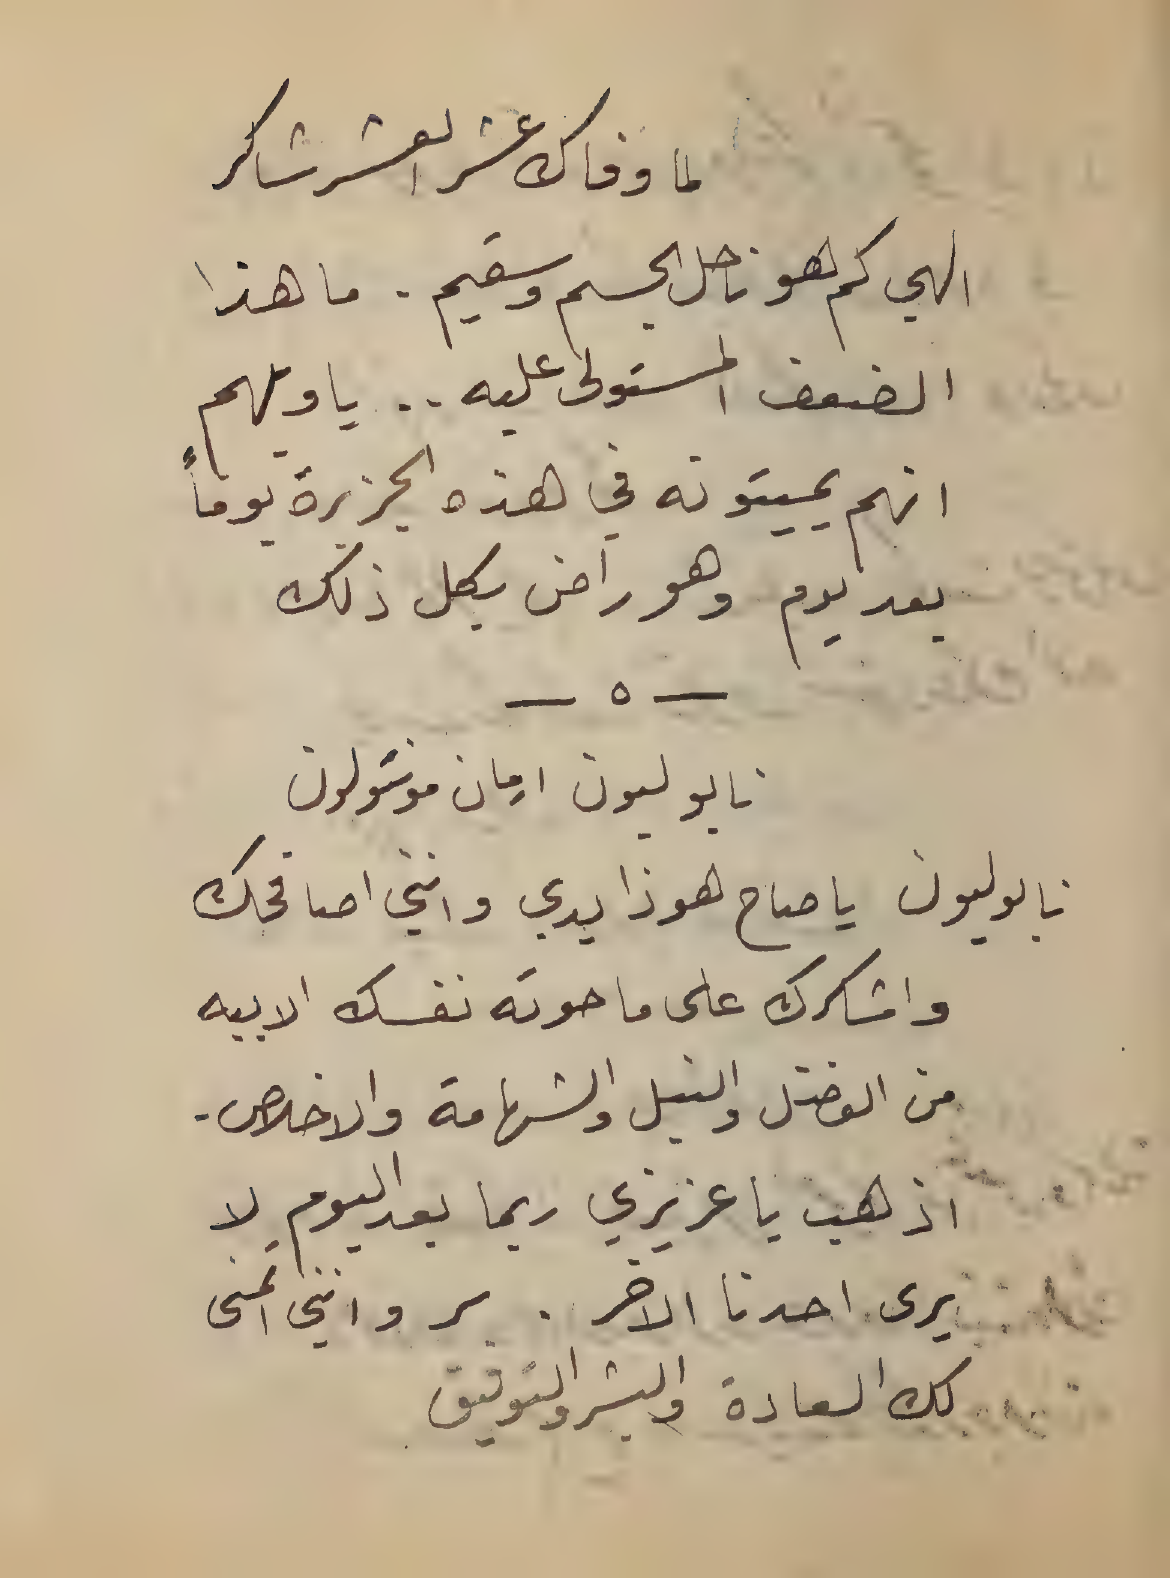 لما وفاك عشر العشر شاكر
الهي كم هو ناحل الجسم وسقيم . ما هذا
الضعف المستولى عليه .. يا ويلهم
انهم يميتونه في هذه الجزيرة يوماً
بعد يوم وهو راض بكل ذلك
— ٥ —
نابوليون ارمان مونتولون
نابوليون يا صاح هوذا يدي وانني اصافحك
واشكرك على ما حوته نفسك الابيه
من الفضل والنبل والشهامة والاخلاص .
اذهب يا عزيزي ربما بعد اليوم لا
يرى احدنا الاخر . سر وانني اتمنى
لك السعادة والبشر والتوفيق